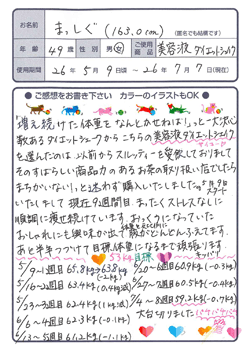 お名前
まっしぐ(163.0cm)
(匿名でも結構です)
年齢 49才 性別 男・女 ご使用商品 美容液ダイエットシェイク
使用期間 26年5月9日~26年7月7日(現在)
●ご感想をお書き下さい カラーのイラストもOK●
増え続けた体重をなんとかせねば!っと一大決心
数あるダイエットシェークからこちらの美容液ダイエットシェイク
を選んだのは以前からスルッティーを愛飲しておりまして
そのすばらしい商品力のあるお茶の取り扱い店でしたら
まちがいない!、と迷わず購入いたしました。5月9日スタート
いたしまして現在9週間目。まったくストレスなしに
順調に痩せ続けています。おっくうになっていた
おしゃれにも興味が出て服がどんどんふえてます。
あと半年つづけて目標体重になるまで頑張ります。
53kg目標
5/9~1週目 65.8kg→63.8kg
(-2kg)
5/16~2週目 63.4kg(0.4kg減)
5/23~3週目 62.4kg(1kg減)
6/6~4週目 62.3kg(-0.1kg)
6/13~5週目 61.2kg(-1.1kg)
6/20~6週目 60.9kg(-0.3kg)
6/27~7週目 60.5kg(-0.4kg)
7/4~8週目 59.2kg(-0.7kg)
大台切りました